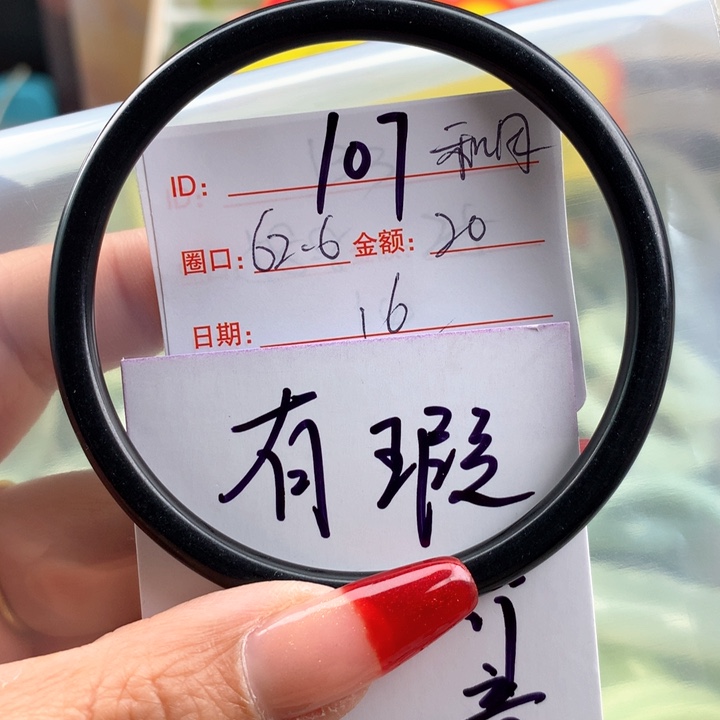 ID: 107 和田
圈口: 62-6 金额: 20
日期: 16
有瑕